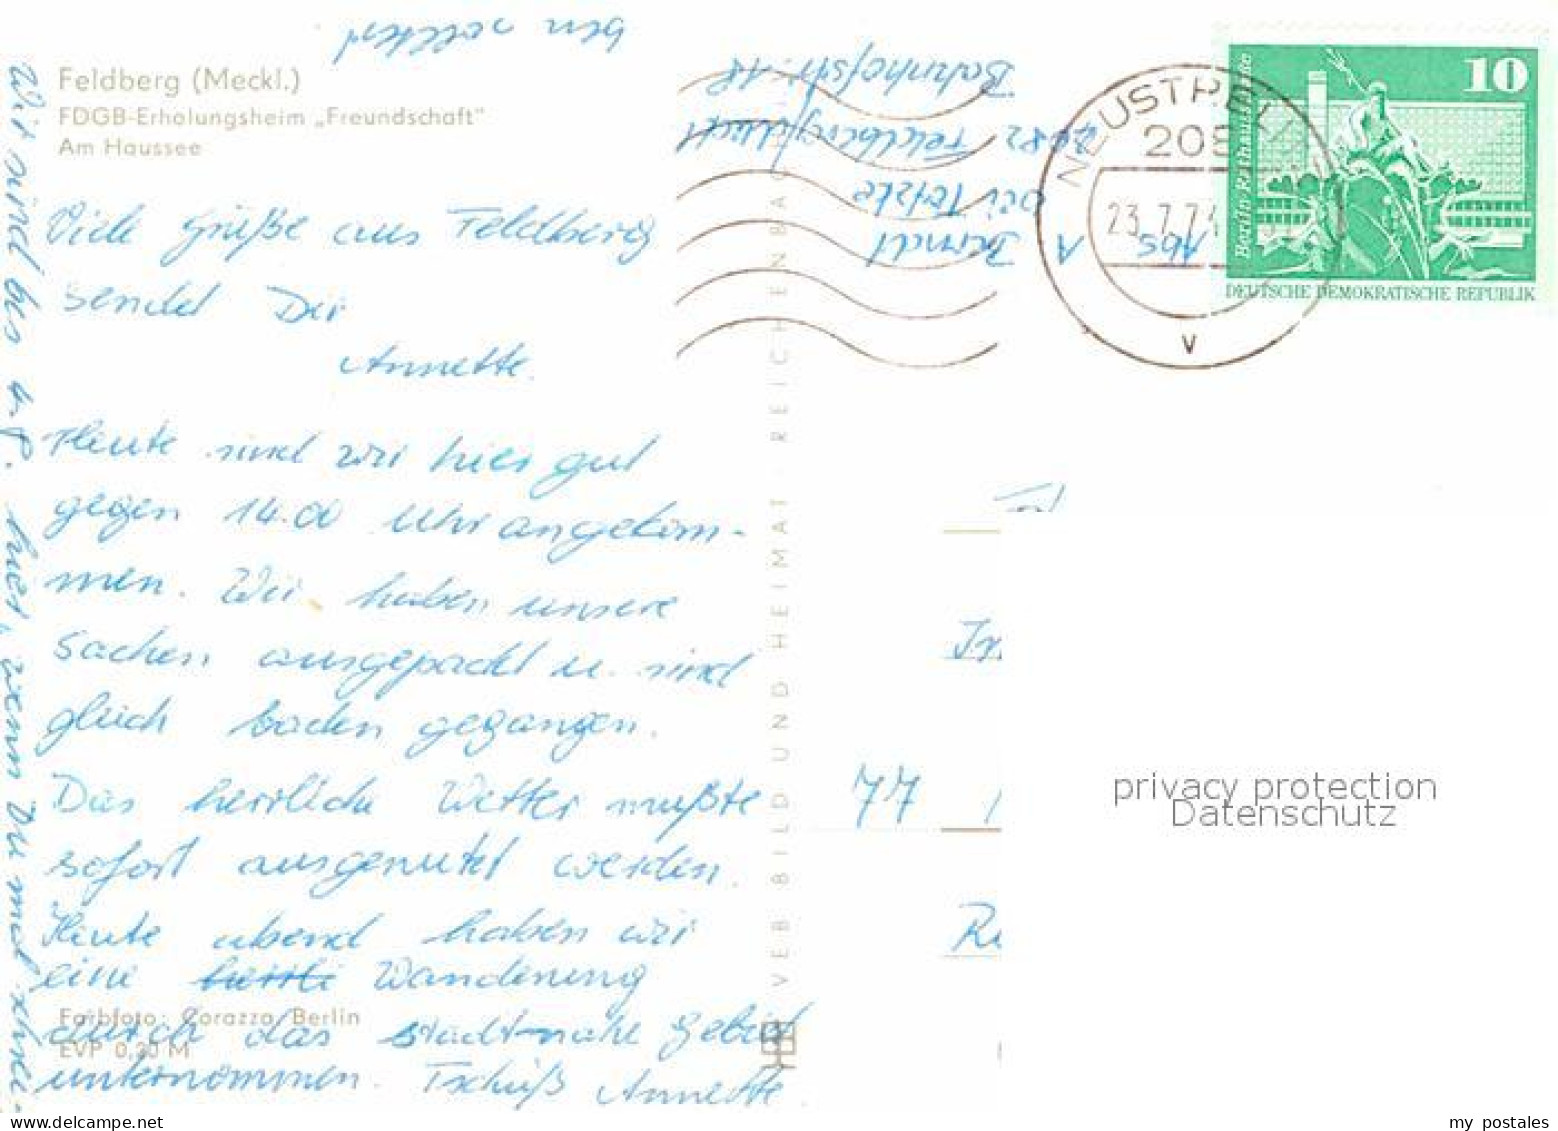 Feldberg (Meckl.)
FDGB-Erholungsheim „Freundschaft"
Am Haussee
Viele Grüße aus Feldberg
sendet Dir
Annette.
Heute sind wir hier gut
gegen 14.00 Uhr angekom-
men. Wir haben unsere
Sachen ausgepackt u. sind
gleich baden gegangen.
Das herrliche Wetter mußte
sofort ausgenutzt werden.
Heute abend haben wir
eine Wanderung
durch das stadtnahe Gebiet
unternommen. Tschüß Annette
Farbfoto: Corazza, Berlin
EVP 0,20 M
Wir sind bis hier, wenn Du mal schrei-
ben solltest
Abs
A
Berndt
bei Tetzke
2082 Feldberg
Bahnhofstr. 18
VEB BILD UND HEIMAT REICHENBACH
NEUSTREL
208
23.7.7
v
10
Berlin Rathausstraße
DEUTSCHE DEMOKRATISCHE REPUBLIK
77
privacy protection
Datenschutz
my postales